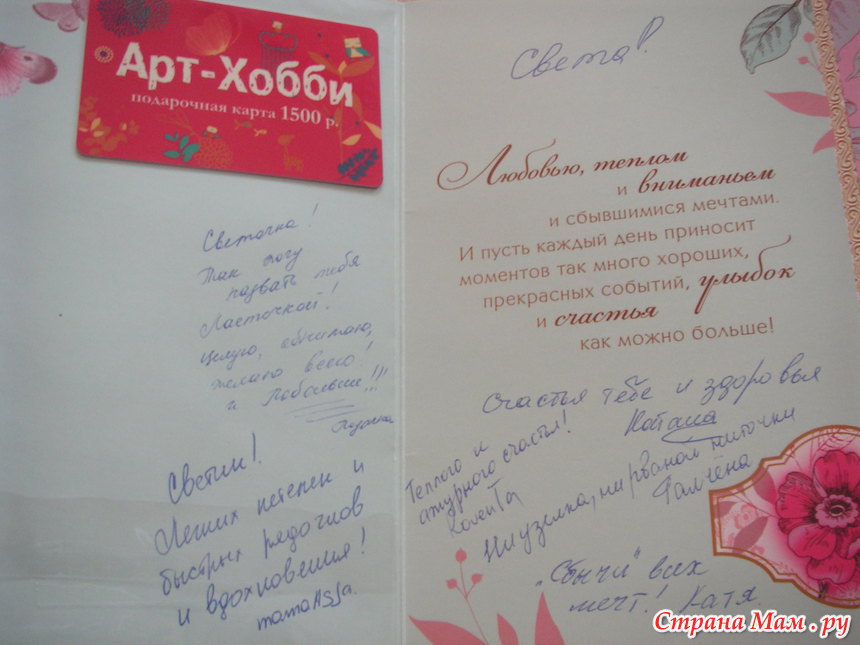 Арт-Хобби
подарочная карта 1500 р.
Светочка!
Так хочу
назвать тебя
Ласточкой!
Целую, обнимаю,
желаю всего!
и Побольше!!!
Светик!
Легких петелек и
быстрых рядочков
и вдохновения!
mamaAssa.
Света!
Любовью, теплом
и вниманьем
и сбывшимися мечтами.
И пусть каждый день приносит
моментов так много хороших,
прекрасных событий, улыбок
и счастья
как можно больше!
Счастья тебе и здоровья
Теплого и
ажурного счастья!
Ни узелка, ни рваной ниточки
Галчёна
"Сбычи" всех
мечт! Катя
Страна Мам.ру